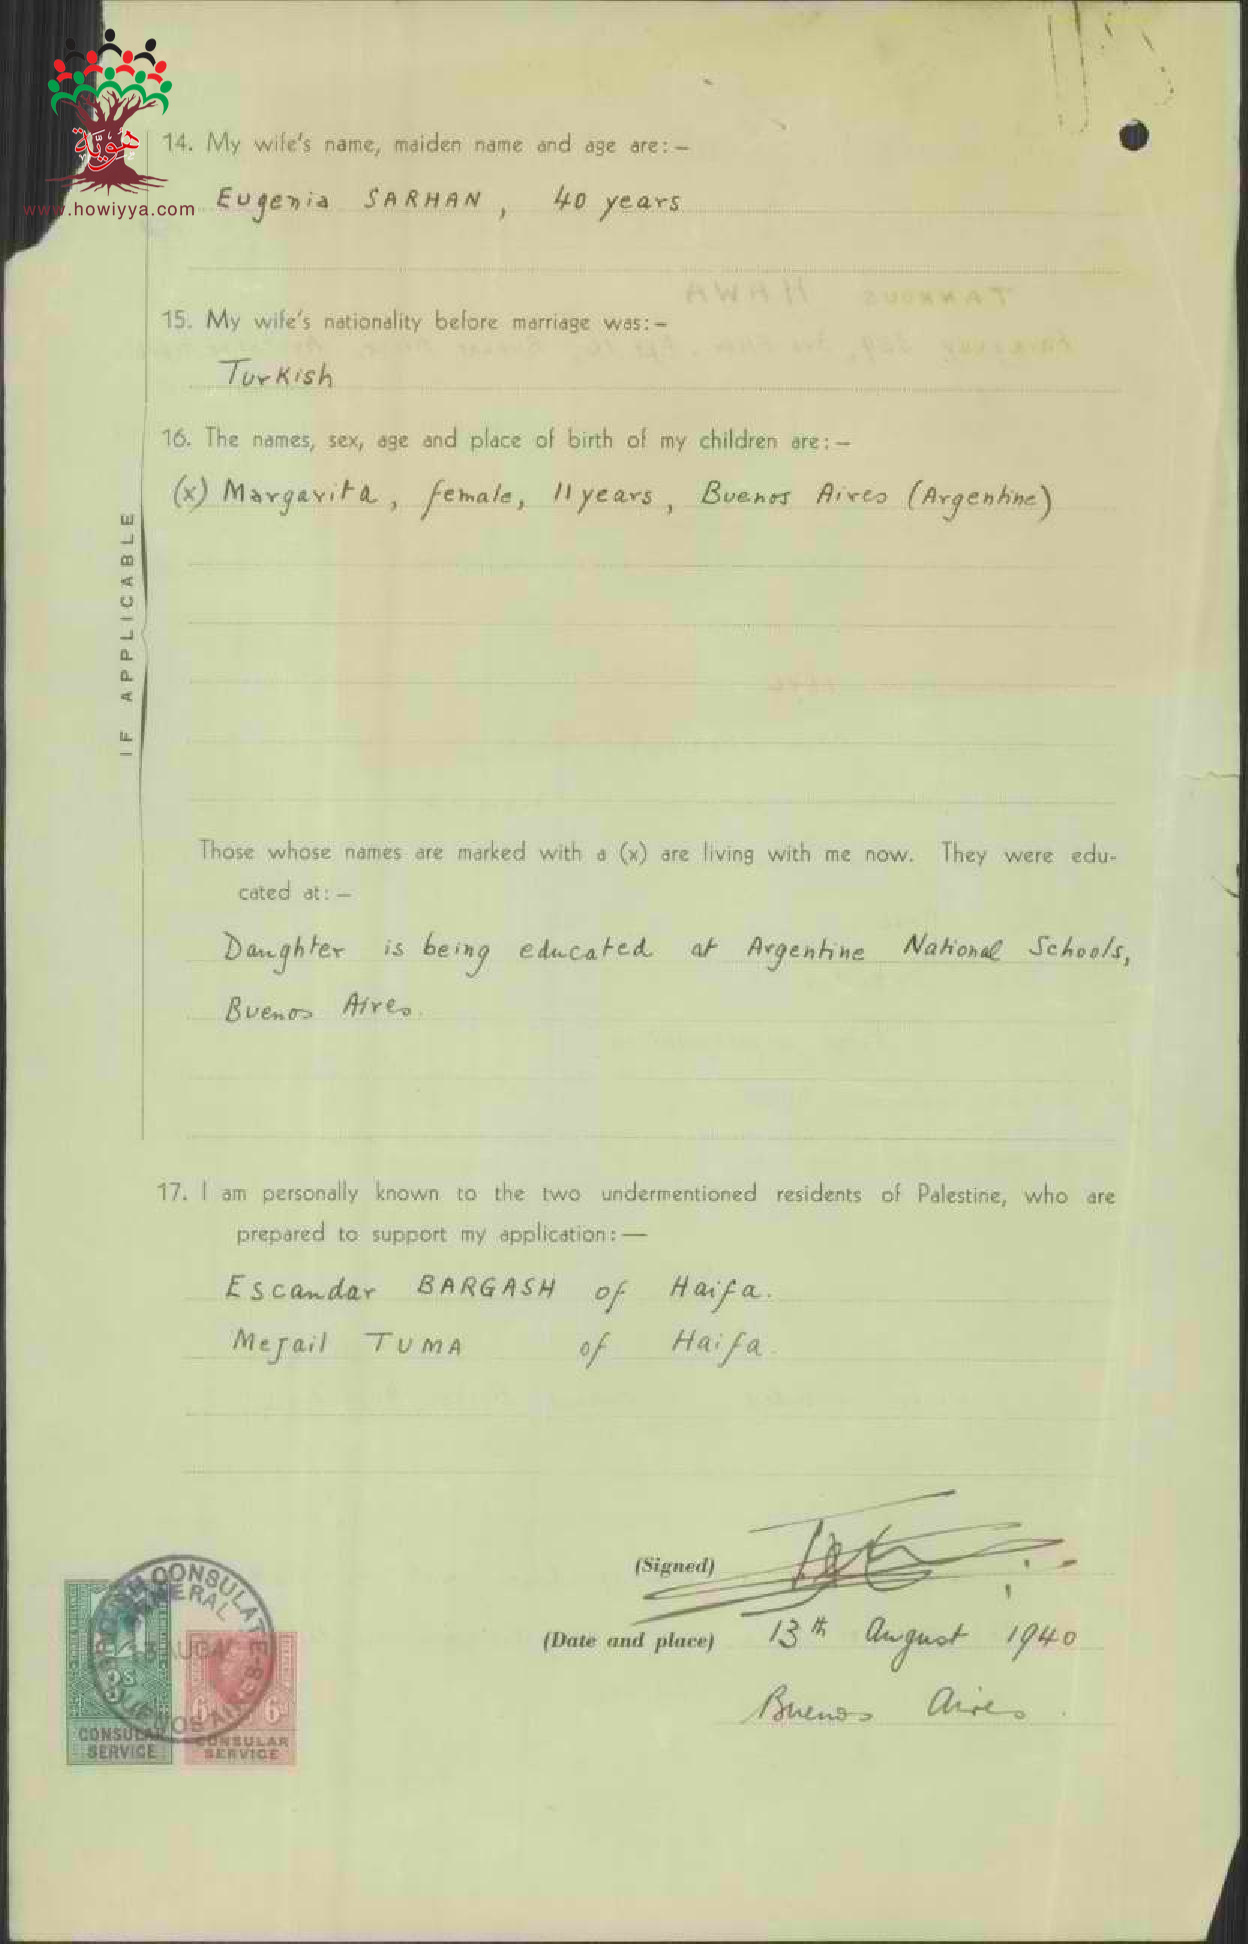 هوية
www.howiyya.com
14. My wife's name, maiden name and age are:–
Eugenia SARHAN, 40 years
TANNOUS HAWA
15. My wife's nationality before marriage was:–
Turkish
16. The names, sex, age and place of birth of my children are:–
(x) Margarita, female, 11 years, Buenos Aires (Argentine)
IF APPLICABLE
Those whose names are marked with a (x) are living with me now. They were edu-
cated at:–
Daughter is being educated at Argentine National Schools,
Buenos Aires.
17. I am personally known to the two undermentioned residents of Palestine, who are
prepared to support my application:—
Escandar BARGASH of Haifa.
Mejail TUMA of Haifa.
(Signed)
(Date and place) 13th August 1940
Buenos Aires.
BRITISH CONSULATE
GENERAL
13 AUG
BUENOS AIRES
6d 6d
CONSULAR
SERVICE
CONSULAR
SERVICE